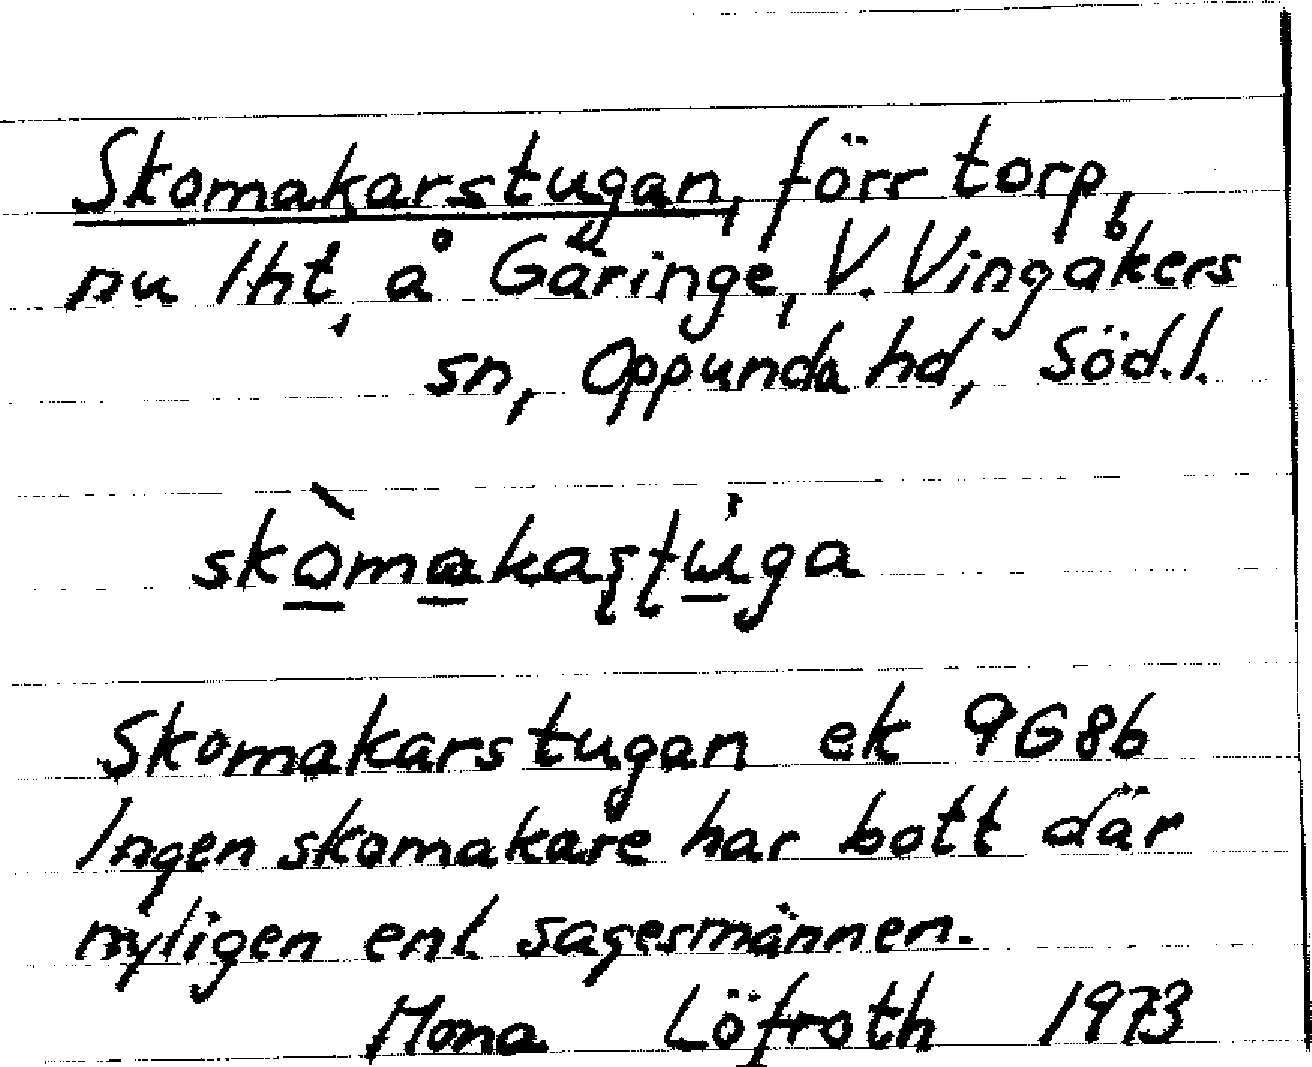 Skomakarstugan, förr torp,
nu lht, å Gäringe, V. Vingåkers
sn, Oppunda hd, Söd.l.
skòmakaştu̇ga
Skomakarstugan ek 9G8b
Ingen skomakare har bott där
nyligen enl. sagesmännen.
Mona Löfroth 1973